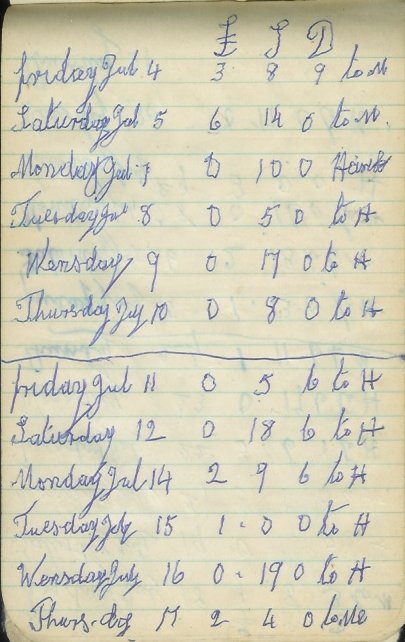 £ S D
friday Jul 4 3 8 9 to M
Saturday Jul 5 6 14 0 to M.
Monday Jul 7 0 10 0
Tuesday Jul 8 0 5 0 to H
Wensday 9 0 17 0 to H
Thursday July 10 0 8 0 to H
friday Jul 11 0 5 6 to H
Saturday 12 0 18 6 to H
Monday Jul 14 2 9 6 to H
Tuesday July 15 1 - 0 0 to H
Wensday July 16 0 - 19 0 to H
Thurs-day 17 2 4 0 to Me